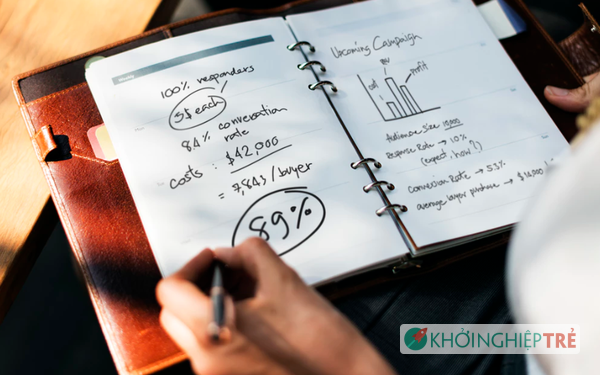 Weekly
100% responders
5$ each
84% conversation
rate
costs : $42,000
= 7,843 / buyer
89%
Upcoming Campaign
cost
profit
Audience size 10,000
Response Rate → 10%
(expect, how?)
conversion Rate → 53%
average buyer purchase → $10,000
KHỞINGHIỆPTRẺ